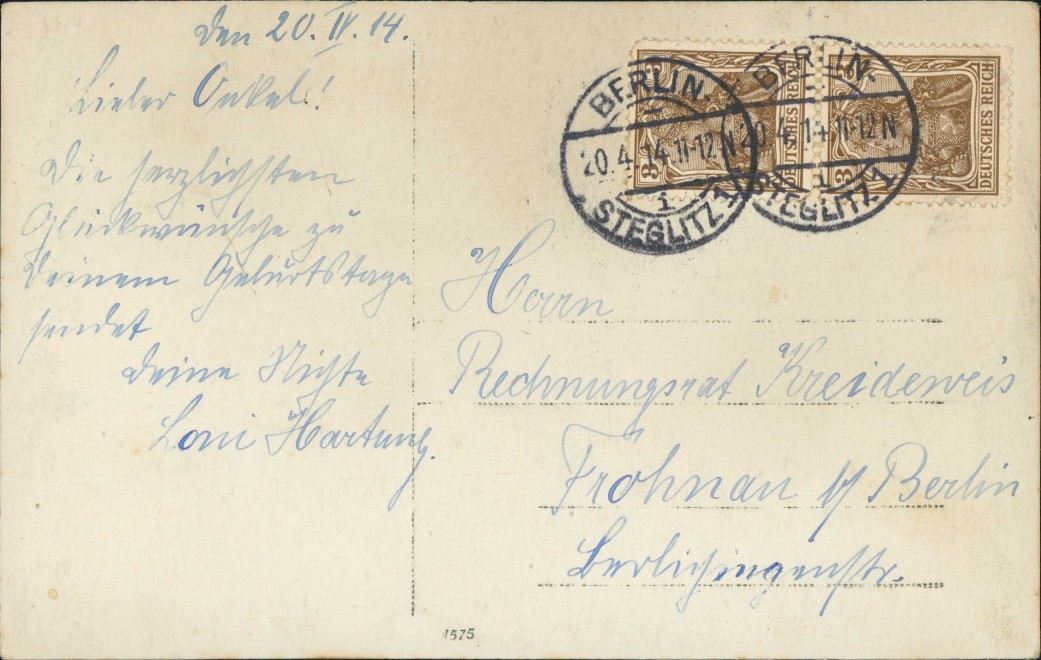 den 20. IV. 14.
Lieber Onkel!
Die herzlichsten
Glückwünsche zu
Deinem Geburtstage
sendet
Deine Nichte
Loni Hartung.
BERLIN-
20.4.14.11-12N
1
STEGLITZ 1
BERLIN-
20.4.14.11-12N
1
STEGLITZ 1
3 3
DEUTSCHES REICH
3 3
DEUTSCHES REICH
Herrn
Rechnungsrat Kreideweis
Frohnau b/ Berlin
Berlichingenstr.
1575